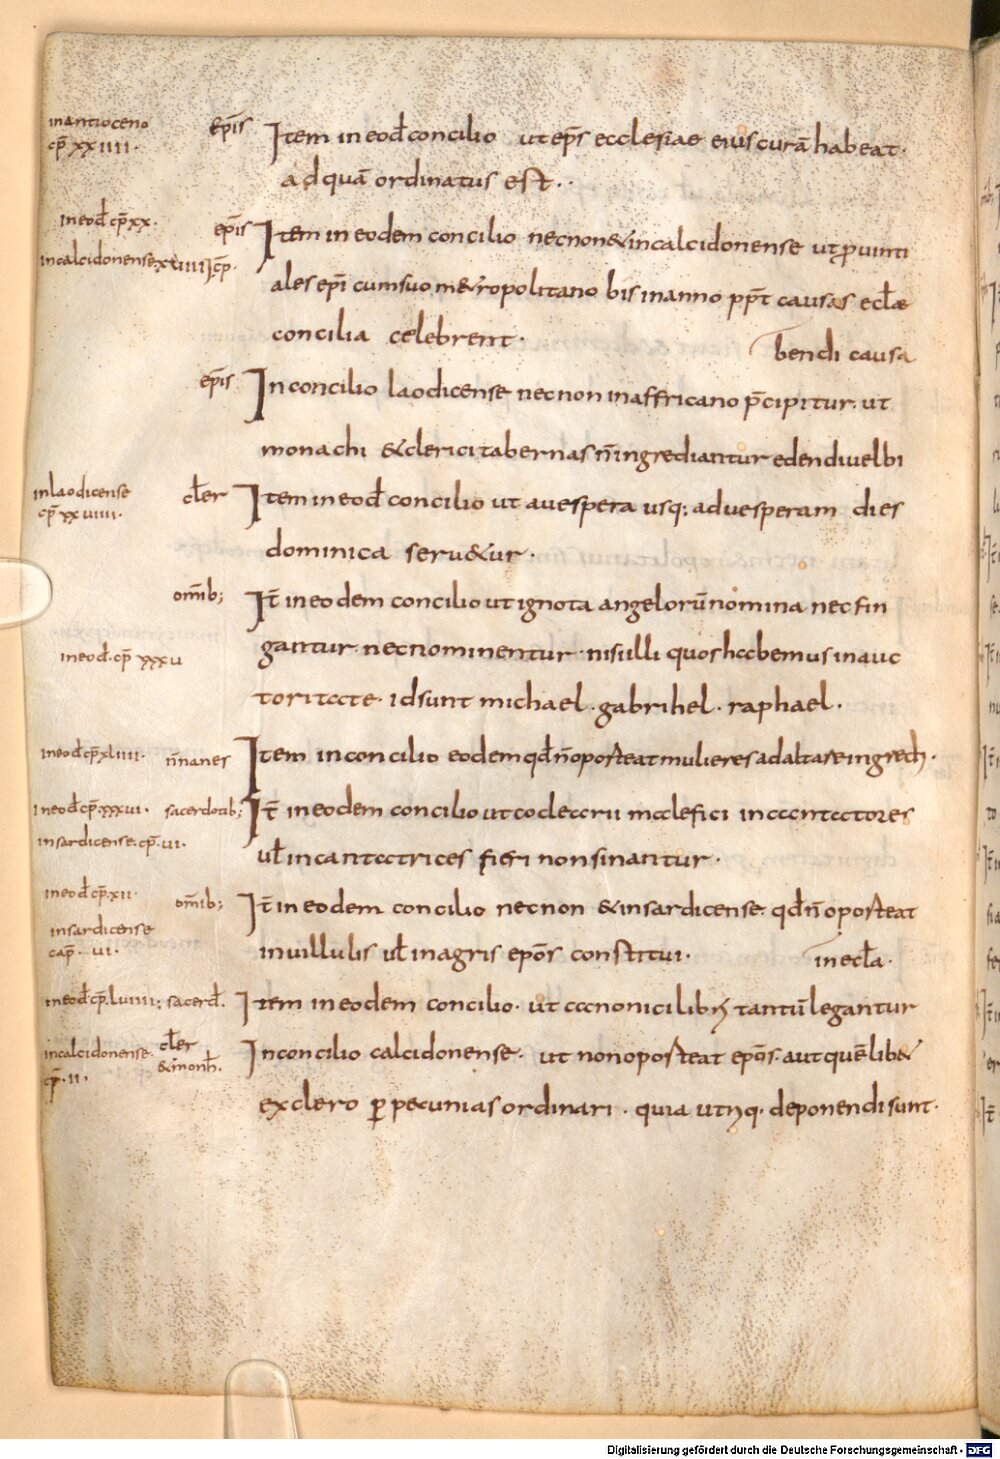 in antioceno
cp̄ xxiiii·
ep̄is Item in eod̄ concilio ut ep̄s ecclesiae eius curā habeat·
ad quā ordinatus est··
in eod̄ cp̄ xx·
ep̄is Item in eodem concilio necnon & in calcidonense ut ꝓuinti
in calcidonense xuiiii cp̄·
ales ep̄i cum suo m&ropolitano bis in anno pp̄t causas eclae
concilia celebrent·
bendi causa
ep̄is In concilio laodicense necnon in affricano p̄cipitur· ut
monachi & clerici tabernas n̄ ingrediantur edendi uel bi
in laodicense
cp̄ xxuiiii·
cler Item in eod̄ concilio ut a uespera usq; ad uesperam dies
dominica seru&ur·
om̄ib; It̄ in eodem concilio ut ignota angelorū nomina nec fin
gantur nec nominentur· nisi illi quos habemus in auc
in eod̄· cp̄ xxxu
toritate· id sunt michael· gabrihel· raphael·
in eod̄ cp̄ xliiii· Item in concilio eodem qd̄ n̄ oporteat mulieres ad altare ingredi·
in eod̄ cp̄ xxxui· sacerdotib; It̄ in eodem concilio ut codearii malefici incantatores
in sardicense· cp̄· ui·
ul̄ incantatrices fieri non sinantur·
in eod̄ cp̄· xii·
om̄ib; It̄ in eodem concilio necnon & in sardicense· qd̄ n̄ oporteat
in sardicense
cap̄· ui·
in uillulis ul̄ in agris ep̄os constitui·
in ecl̄a·
in eod̄ cp̄ luiiii; sacerd̄· Item in eodem concilio· ut canonici libri tantū legantur
in calcidonense cler
cp̄· ii· & monh̄·
In concilio calcidonense· ut non oporteat ep̄os· aut quēlib&
ex clero ꝑ pecunias ordinari· quia utriq· deponendi sunt·
Digitalisierung gefördert durch die Deutsche Forschungsgemeinschaft - DFG